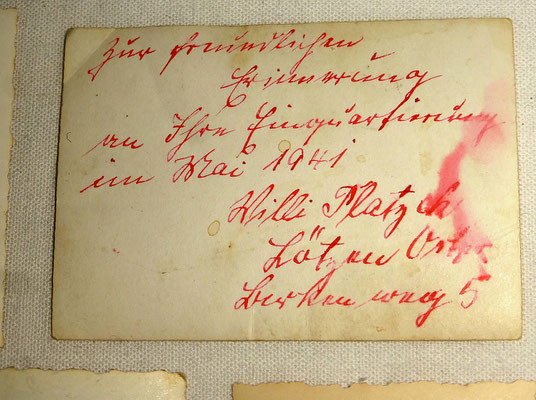 Zur freundlichen
Erinnerung
an Ihre Einquartierung
im Mai 1941
Willi Platzek
Lötzen Ostpr
Birkenweg 5